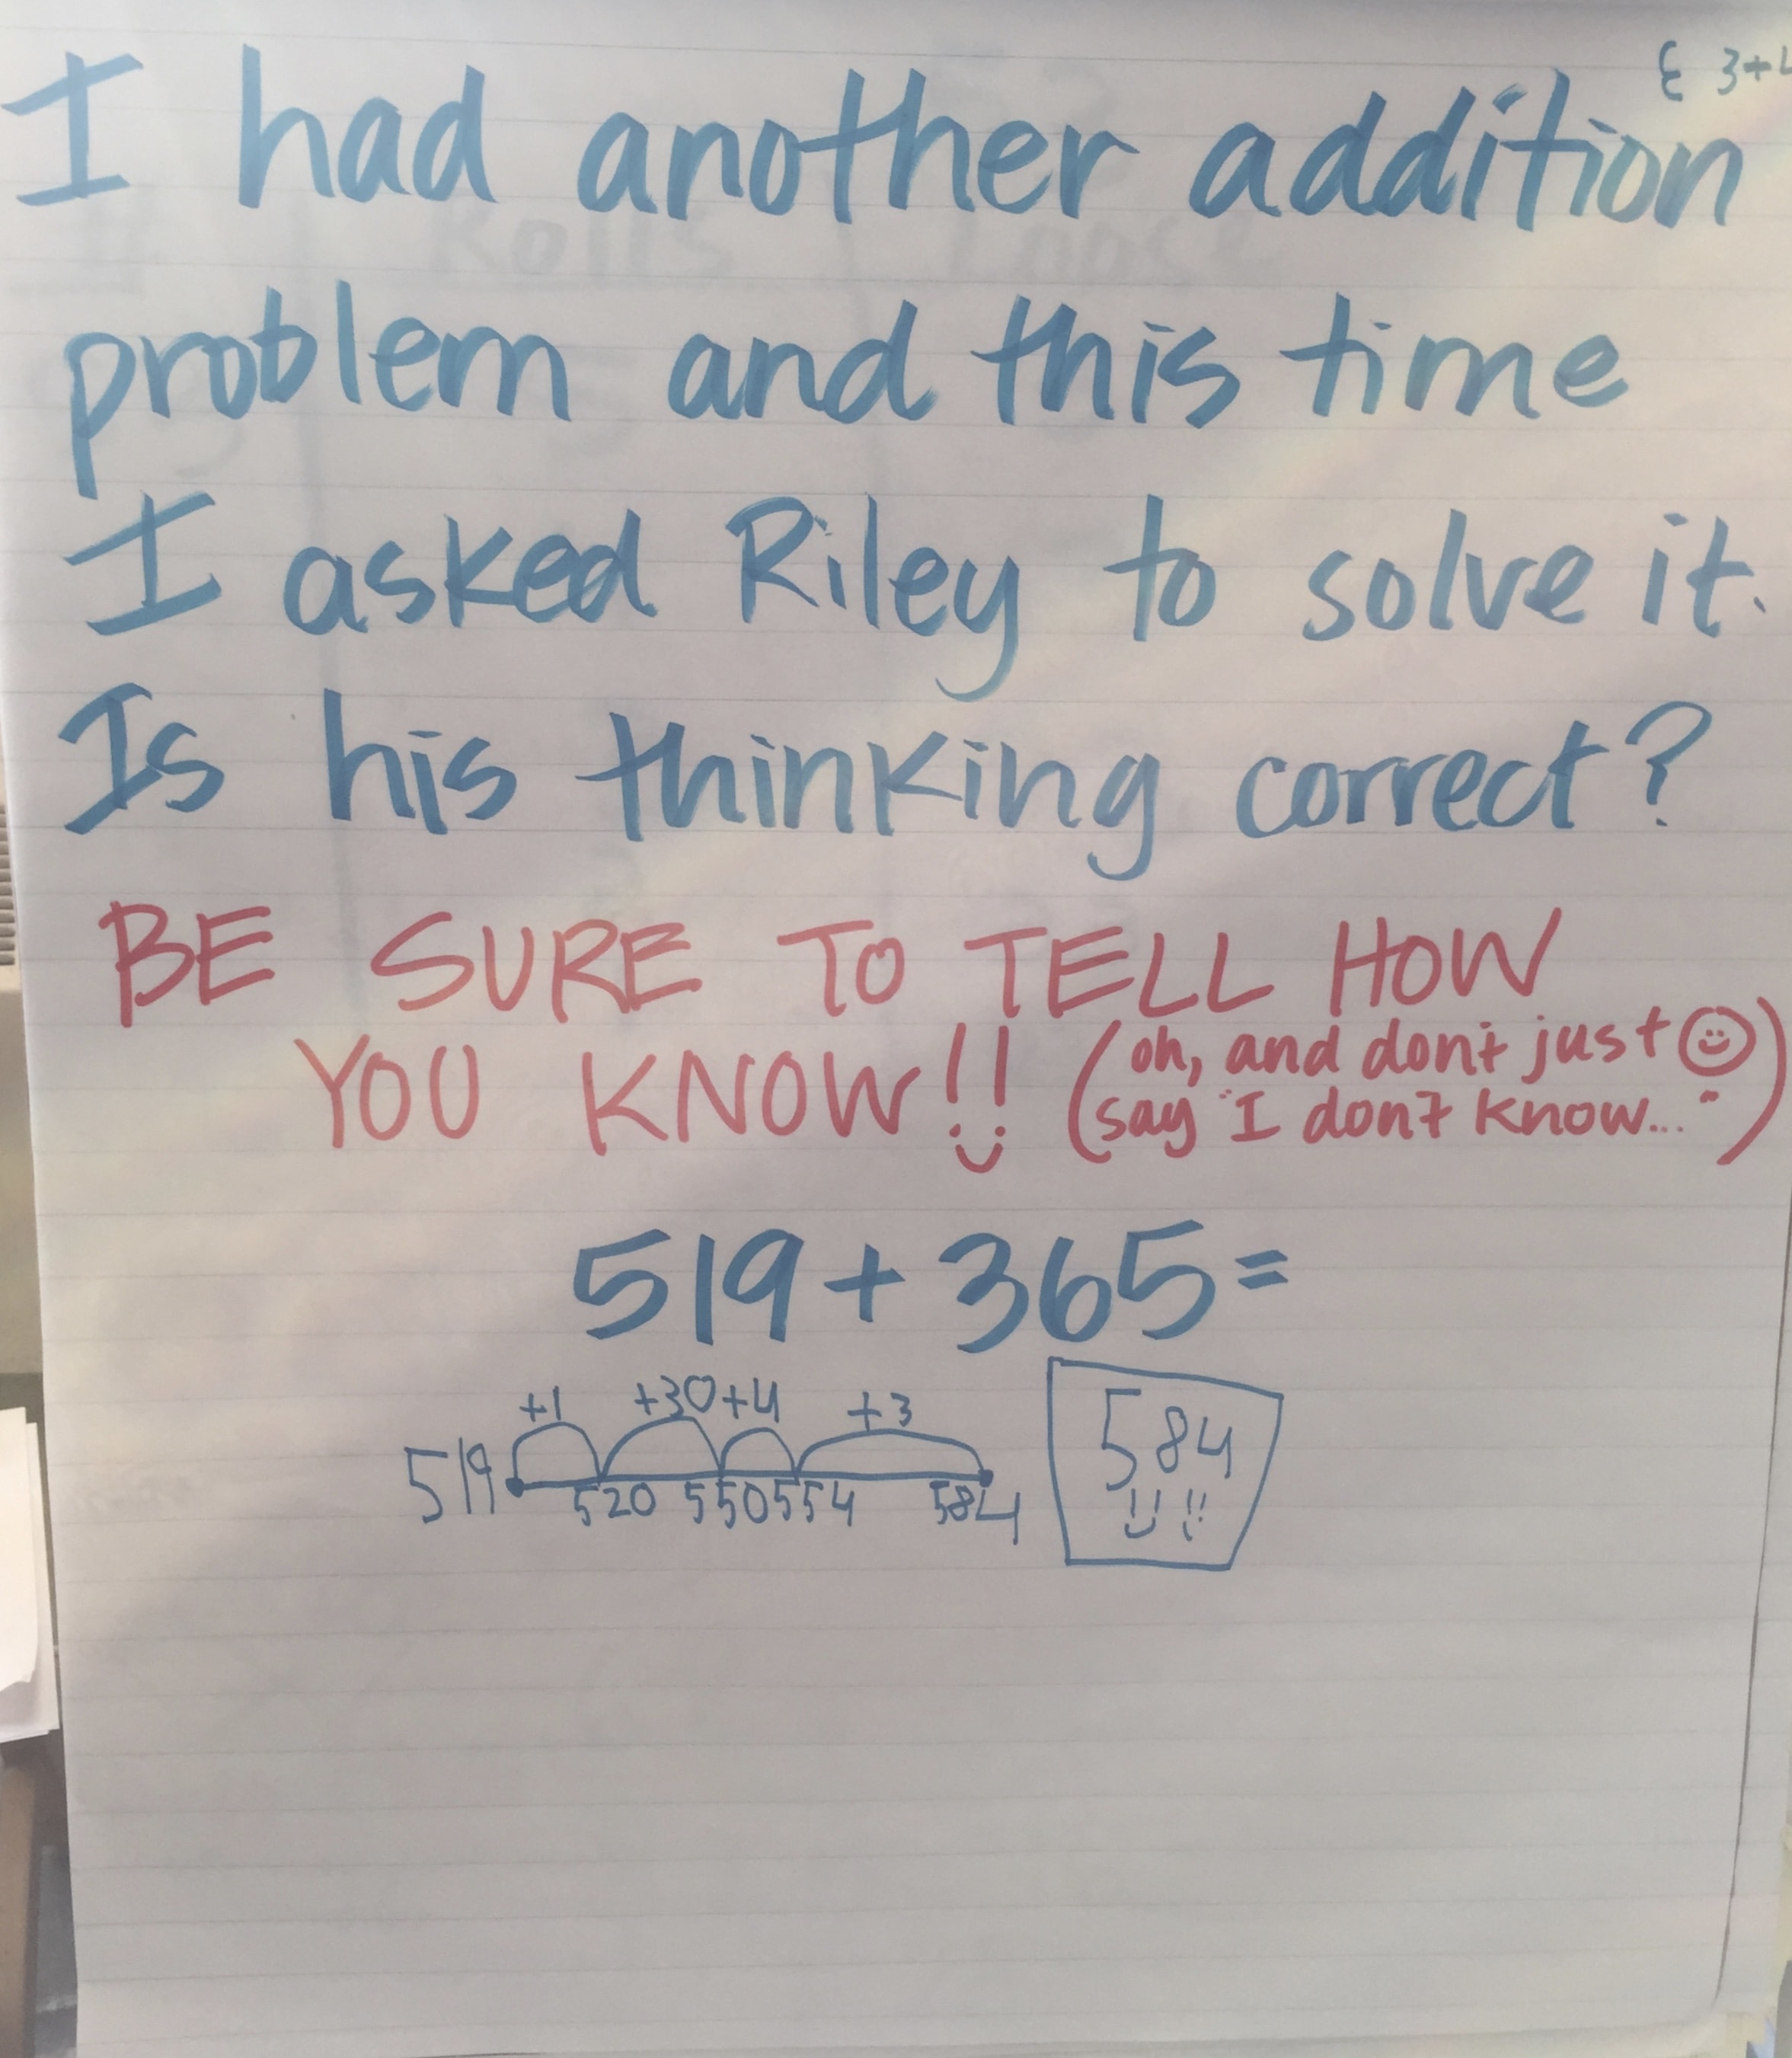 { 3+4
I had another addition
problem and this time
I asked Riley to solve it.
Is his thinking correct?
BE SURE TO TELL HOW
YOU KNOW!! (oh, and don't just
say "I don't know...")
519 + 365 =
+1 +30 +4 +3
519 520 550 554 584
584